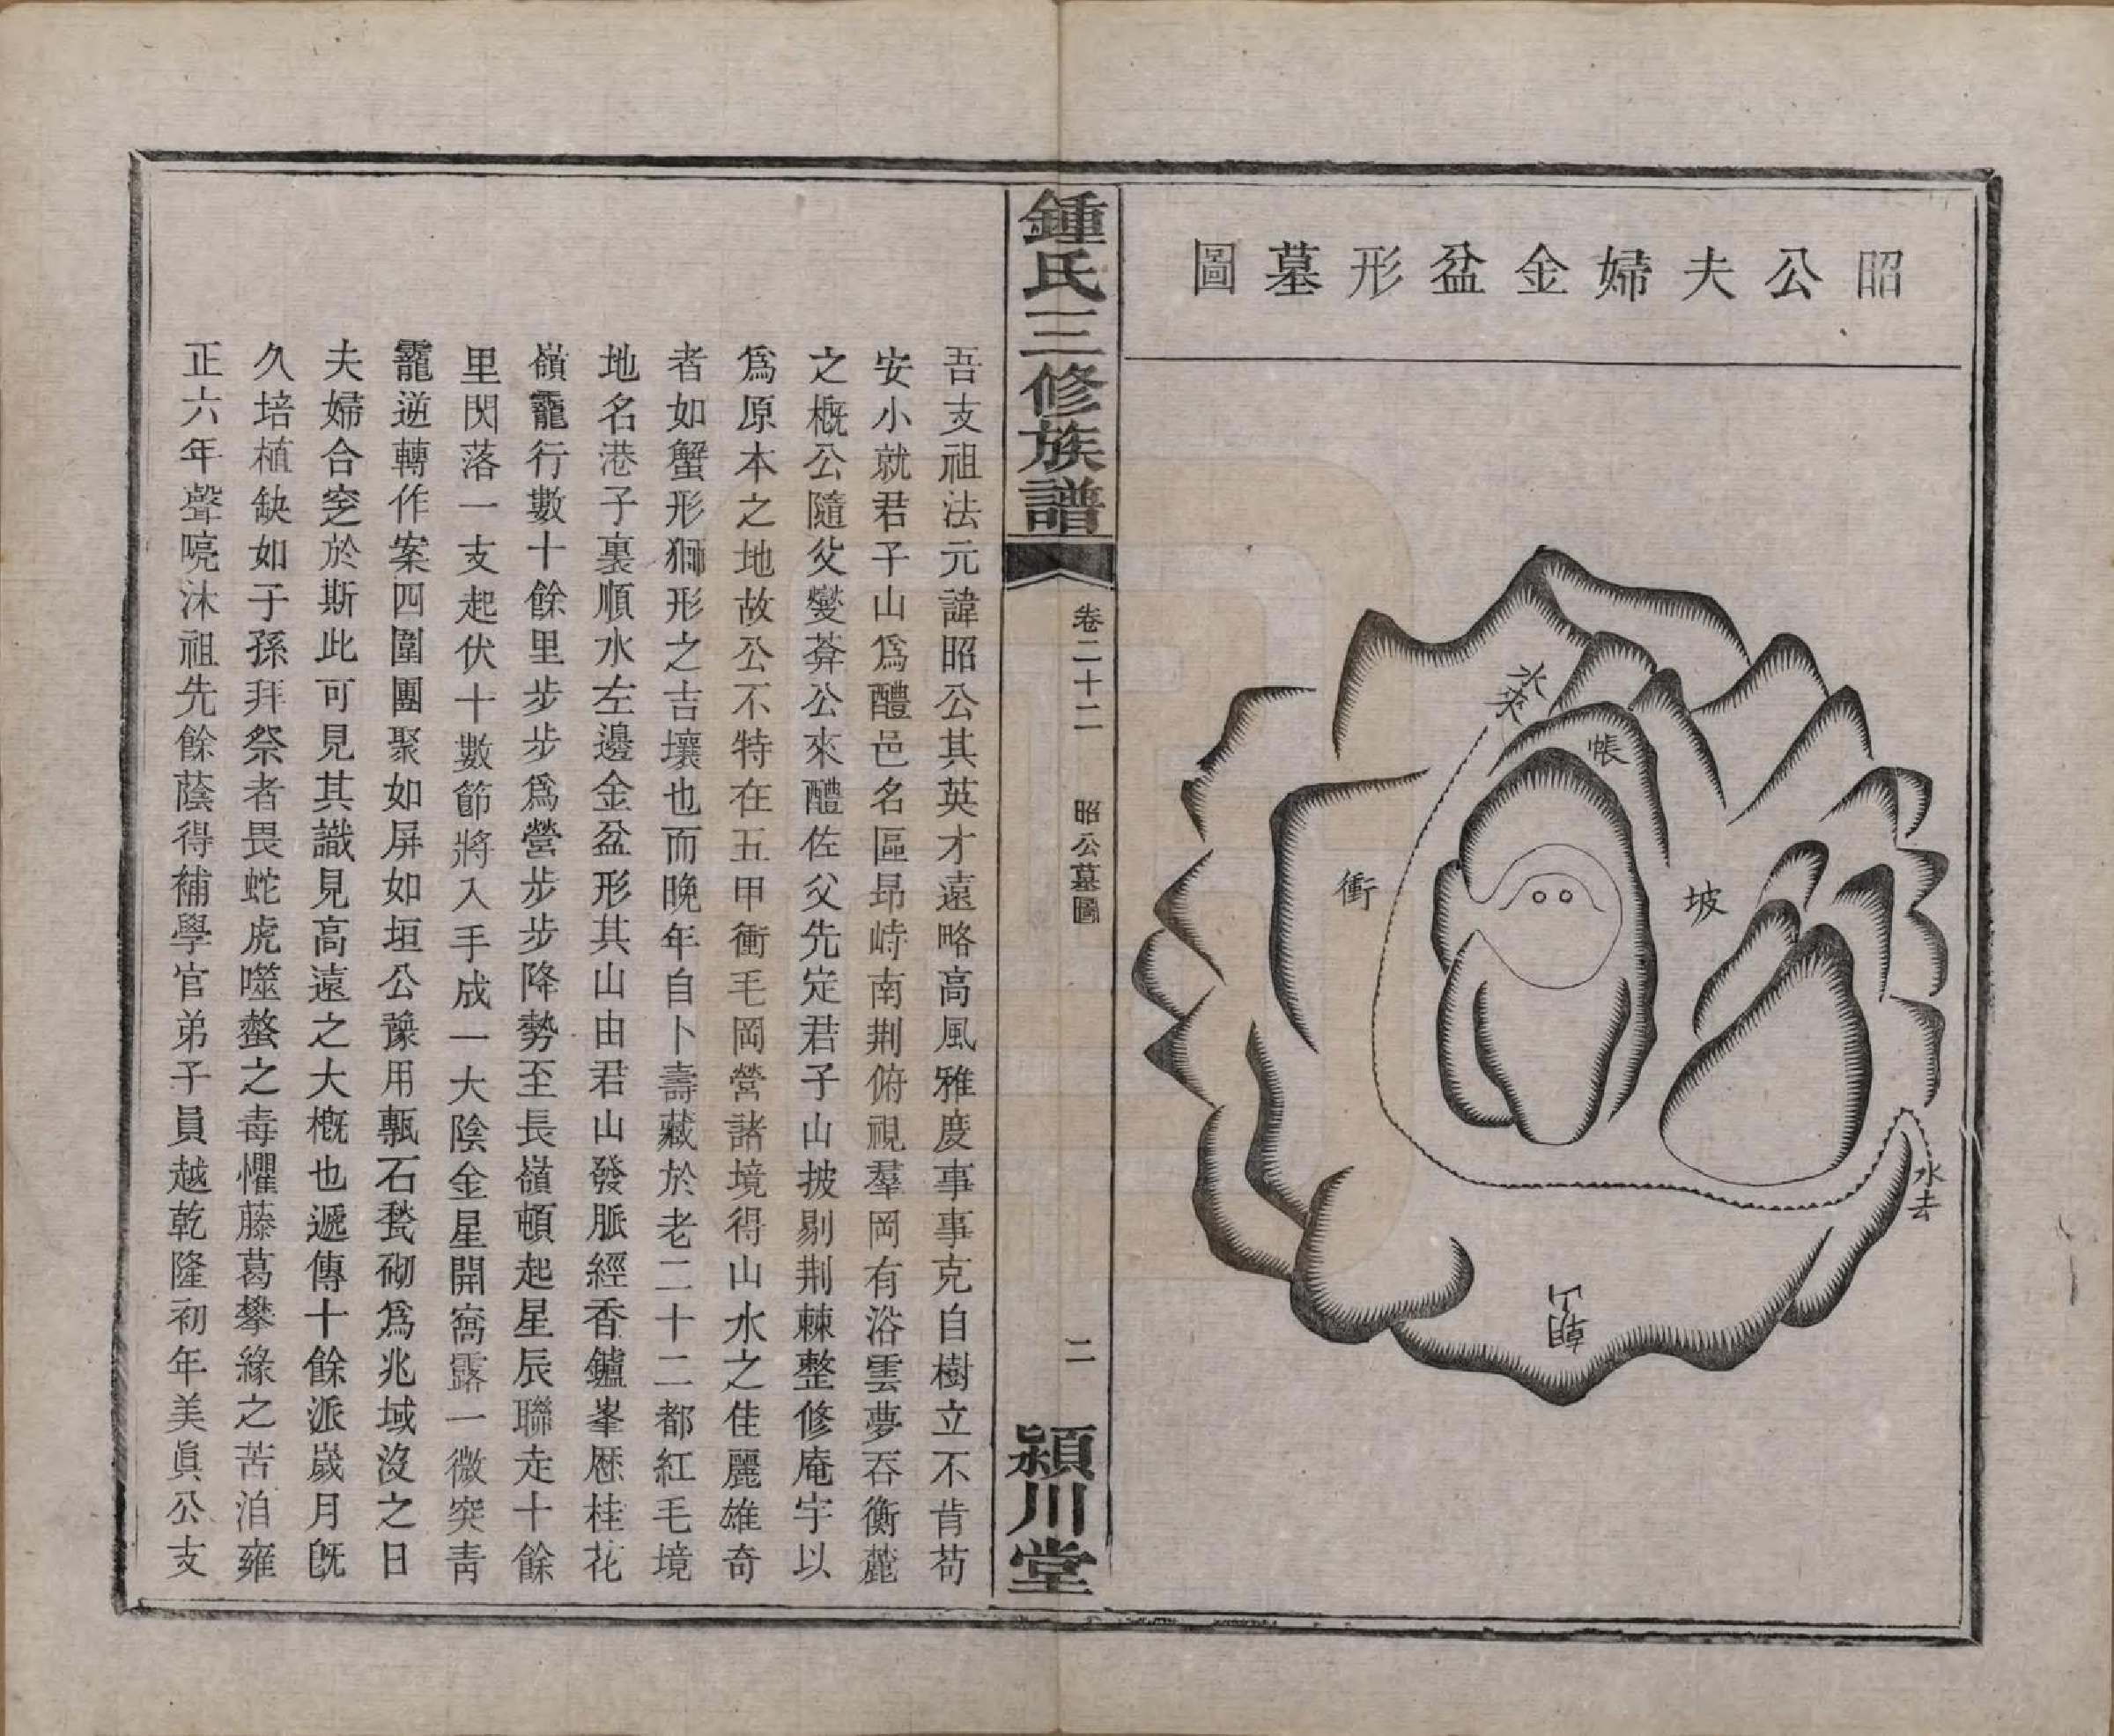 昭公夫婦金盆形墓圖
水來
帳
衝
坡
水去
朝山
鍾氏三修族譜
卷二十二
昭公墓圖
二
潁川堂
吾支祖法元諱昭公其英才遠略高風雅度事事克自樹立不肯苟
安小就君子山爲醴邑名區昻峙南荆俯視羣岡有浴雲夢吞衡麓
之概公隨父燮葊公來醴佐父先定君子山披剔荆棘整修庵宇以
爲原本之地故公不特在五甲衝毛岡營諸境得山水之佳麗雄奇
者如蟹形獅形之吉壤也而晚年自卜壽藏於老二十二都紅毛境
地名港子裏順水左邊金盆形其山由君山發脈經香鑪峯歷桂花
嶺龍行數十餘里步步爲營步步降勢至長嶺頓起星辰聯走十餘
里閃落一支起伏十數節將入手成一大陰金星開窩露一微突靑
龍逆轉作案四圍團聚如屏如垣公豫用甎石甃砌爲兆域沒之日
夫婦合窆於斯此可見其識見高遠之大槪也遞傳十餘派嵗月旣
久培植缺如子孫拜祭者畏蛇虎噬螫之毒懼藤葛攀緣之苦洎雍
正六年聲喨沐祖先餘蔭得補學官弟子員越乾隆初年美眞公支